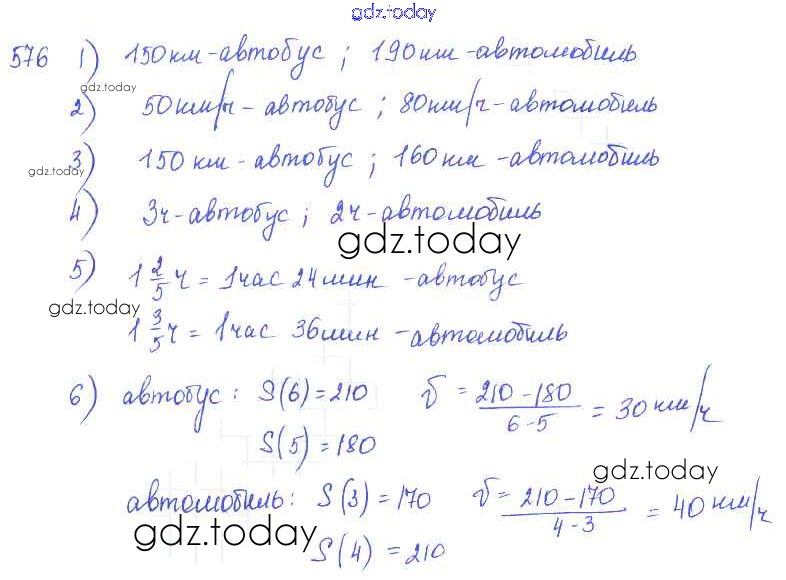 gdz.today
576 1) 150 км - автобус ; 190 км - автомобиль
gdz.today
2) 50 км/ч - автобус ; 80 км/ч - автомобиль
3) 150 км - автобус ; 160 км - автомобиль
gdz.today
4) 3ч - автобус ; 2ч - автомобиль
gdz.today
5) 1 2/5 ч = 1 час 24 мин - автобус
gdz.today
1 3/5 ч = 1 час 36 мин - автомобиль
6) автобус : S(6) = 210 V = (210 - 180)/(6 - 5) = 30 км/ч
S(5) = 180
gdz.today
автомобиль : S(3) = 170 V = (210 - 170)/(4 - 3) = 40 км/ч
gdz.today
S(4) = 210